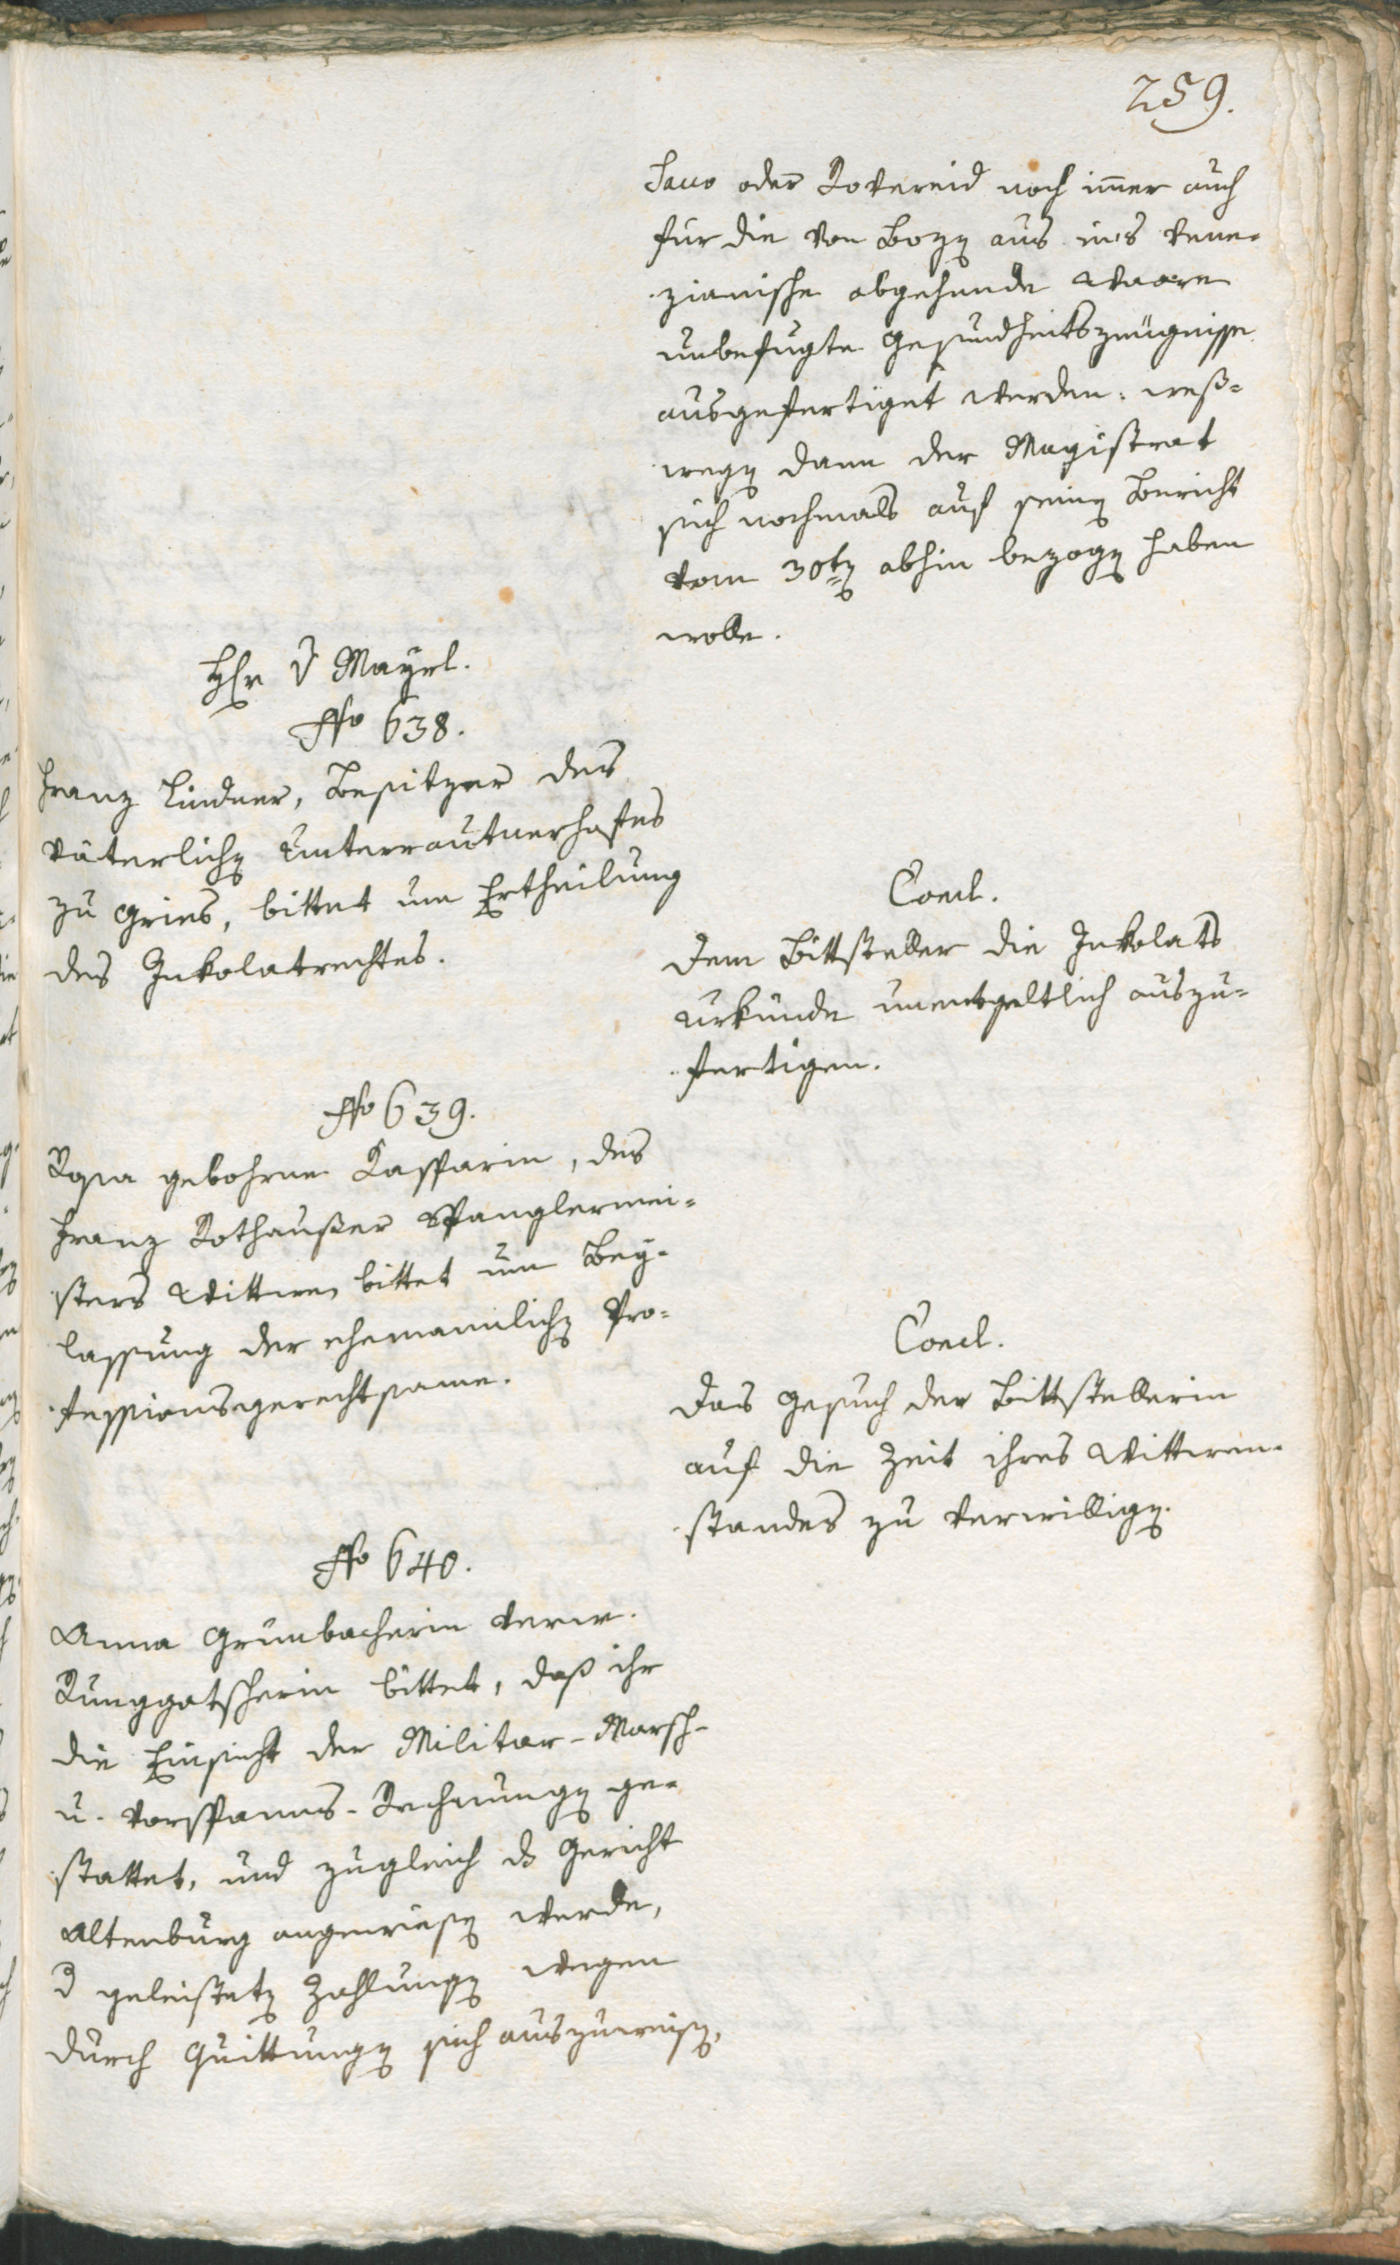 259.
Sacco oder Rovereid noch immer auch
für die von Bozen aus ins Vene-
zianische abgehende Waare
unbefugte Gesundheitszeugnisse
ausgefertiget werden: weß-
wegen dann der Magistrat
sich nochmals auf seinen Bericht
vom 30ten abhin bezogen haben
wolle.
Hr D Mayrl.
No 638.
Franz Lindner, Besitzer des
väterlichen Unterrautnerhofes
zu Gries, bittet um Ertheilung
des Inkolatrechtes.
Concl.
Dem Bittsteller die Inkolats
Urkunde unentgeltlich auszu-
fertigen.
No 639.
Rosa gebohrne Kasparin, des
Franz Rothaußer Spanglermei-
sters Wittwe, bittet um Bey-
lassung der ehemannlichen Pro-
fessionsgerechtsame.
Concl.
Das Gesuch der Bittstellerin
auf die Zeit ihres Wittwen-
standes zu verwilligen.
No 640.
Anna Grünbacherin verw.
Runggatscherin bittet, daß ihr
die Einsicht der Militar-Marsch-
u. Vorspanns-Rechnungen ge-
stattet, und zugleich ds Gericht
Altenburg angewiesen werde,
d geleisteten Zahlungen wegen
durch Quittungen sich auszuweisen,